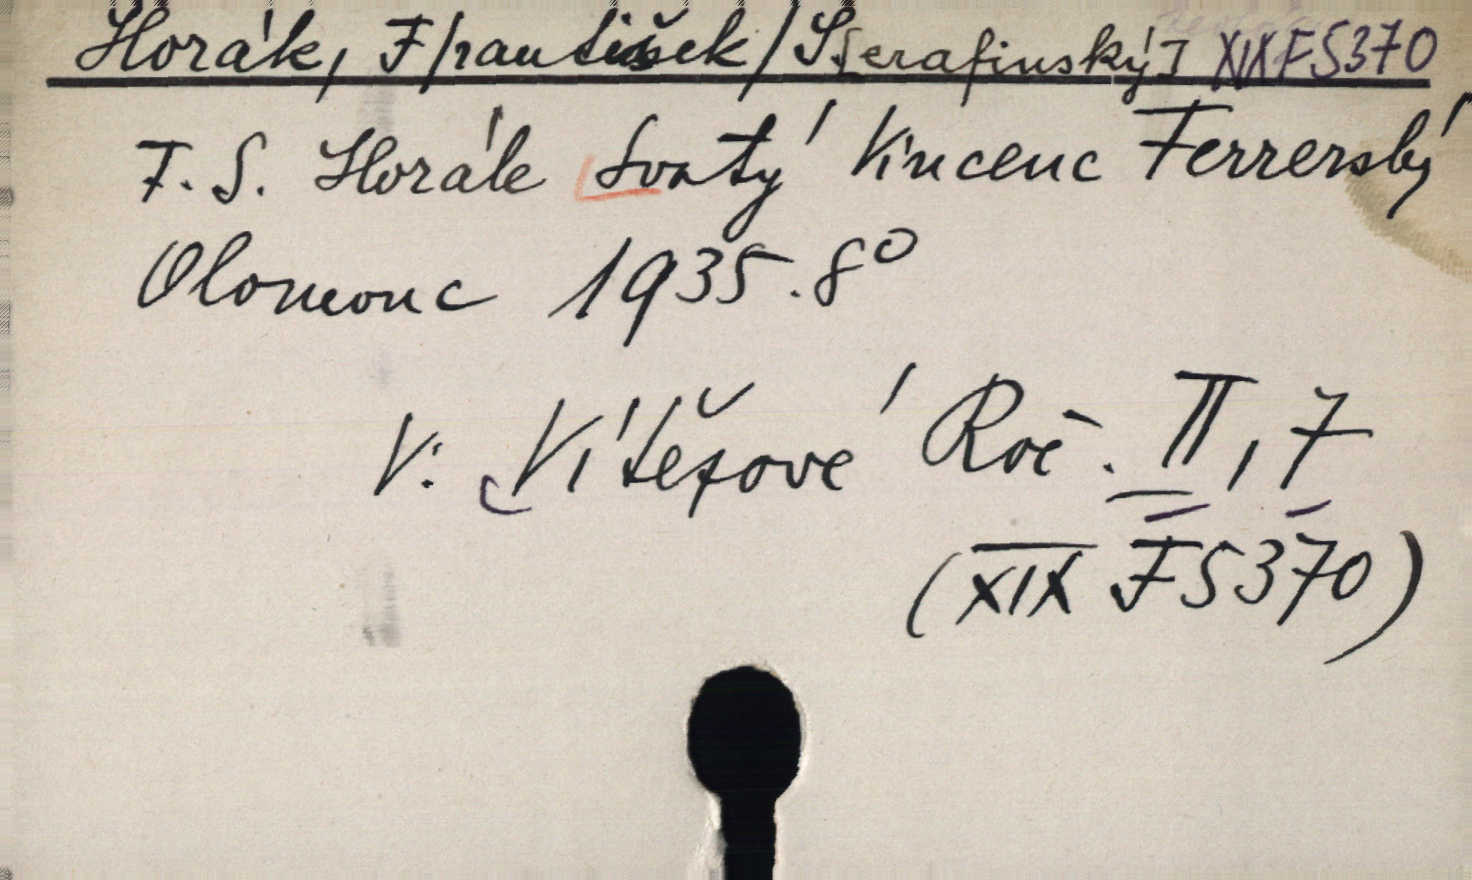 Horák, F/rantišek/ S[erafinský] XIX F 5370
F. S. Horák Svatý Vincenc Ferrerský
Olomouc 1935. 8°
V: Vítězové Roč. II, 7
(XIX F 5370)